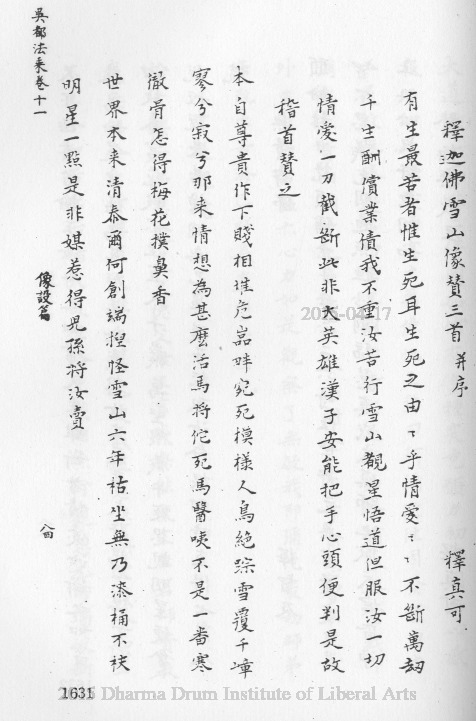 釋迦佛雪山像賛三首 并序
釋真可
有生最苦者惟生死耳生死之由〻乎情愛〻〻不斷萬刼
千生酬償業債我不重汝苦行雪山覩星悟道但服汝一切
情愛一刀截斷此非大英雄漢子安能把手心頭便判是故
稽首賛之
本自尊貴作下賤相堆危嵓畔宛死模樣人鳥絶踪雪覆千峰
寥兮寂兮那来情想為甚麽活馬將佗死馬醫咦不是一番寒
徹骨怎得梅花撲鼻香
世界本来清泰爾何創端揑怪雪山六年枯坐無乃漆桶不快
明星一點是非媒惹得兒孫將汝賣
吳都法乘卷十一
像設篇
八四
1631
2015-04-17
Dharma Drum Institute of Liberal Arts